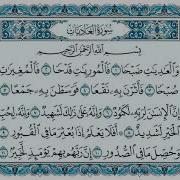 سُورَةُ العَادِيَاتِ
بِسْمِ اللَّهِ الرَّحْمَٰنِ الرَّحِيمِ
وَالْعَٰدِيَٰتِ ضَبْحًا ۝ فَالْمُورِيَٰتِ قَدْحًا ۝ فَالْمُغِيرَٰتِ
صُبْحًا ۝ فَأَثَرْنَ بِهِۦ نَقْعًا ۝ فَوَسَطْنَ بِهِۦ جَمْعًا ۝
إِنَّ الْإِنسَٰنَ لِرَبِّهِۦ لَكَنُودٌ ۝ وَإِنَّهُۥ عَلَىٰ ذَٰلِكَ لَشَهِيدٌ ۝ وَإِنَّهُۥ لِحُبِّ
الْخَيْرِ لَشَدِيدٌ ۝ أَفَلَا يَعْلَمُ إِذَا بُعْثِرَ مَا فِي الْقُبُورِ ۝
وَحُصِّلَ مَا فِي الصُّدُورِ ۝ إِنَّ رَبَّهُم بِهِمْ يَوْمَئِذٍ لَّخَبِيرٌ ۝